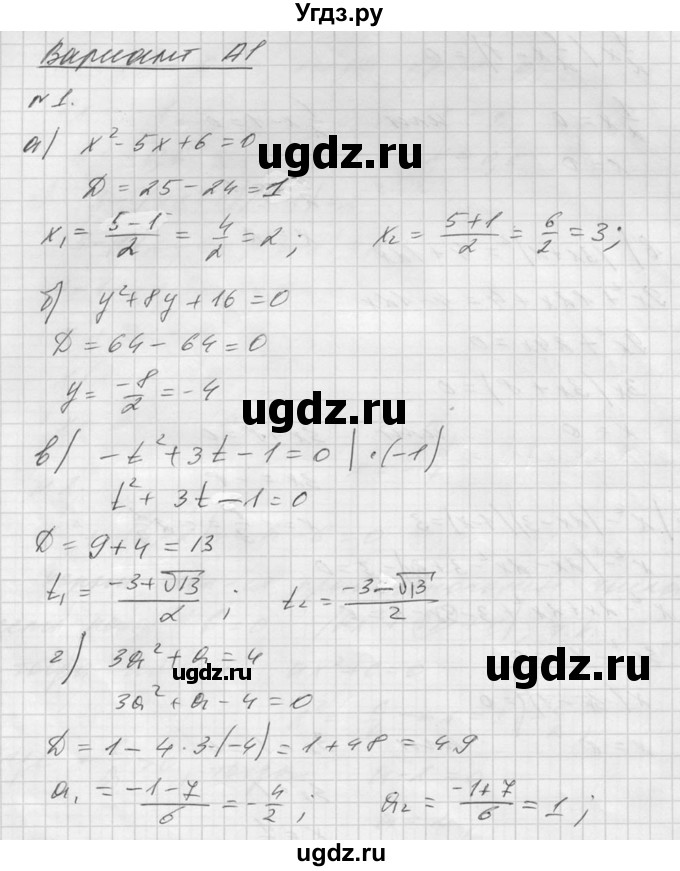 Угдз.ру
Вариант А1
№1.
а) x² - 5x + 6 = 0
ugdz.ru
D = 25 - 24 = 1
x₁ = (5-1)/2 = 4/2 = 2; x₂ = (5+1)/2 = 6/2 = 3;
б) y² + 8y + 16 = 0
D = 64 - 64 = 0
y = -8/2 = -4
ugdz.ru
в) -t² + 3t - 1 = 0 | ·(-1)
t² + 3t - 1 = 0
D = 9 + 4 = 13
t₁ = (-3+√13)/2; t₂ = (-3-√13)/2
г) 3a² + a = 4
ugdz.ru
ugdz.ru
3a² + a - 4 = 0
D = 1 - 4·3·(-4) = 1 + 48 = 49
a₁ = (-1-7)/6 = -4/2; a₂ = (-1+7)/6 = 1;
ugdz.ru